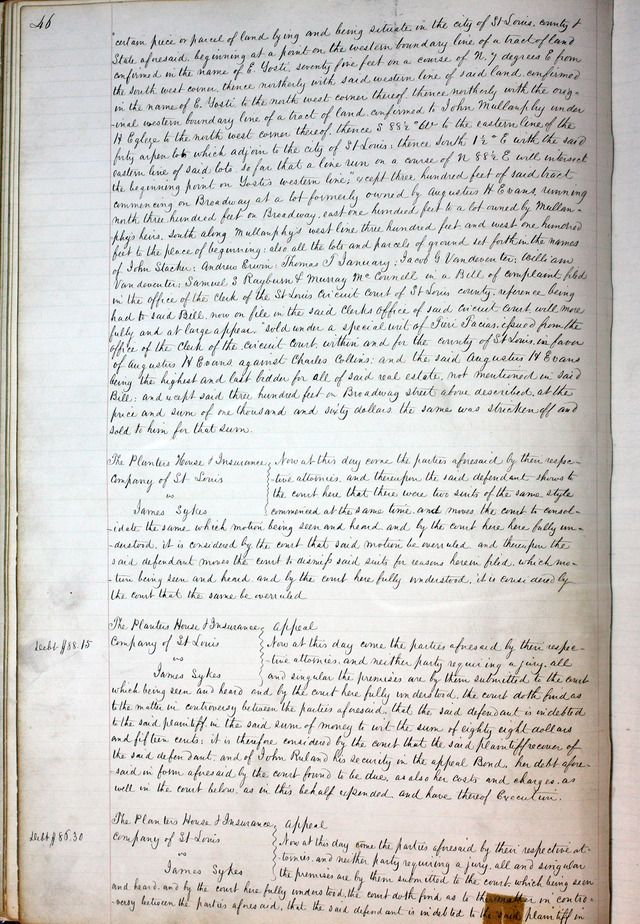 46
"certain piece or parcel of land lying and being situate in the city of St Louis, county &
State aforesaid, beginning at a point on the western boundary line of a tract of land
confirmed in the name of E. Yosti, seventy five feet on a course of N. 7 degrees E from
the south west corner, thence northerly with said western line of said land, confirmed
in the name of E. Yosti to the north west corner thereof, thence northerly with the orig-
inal western boundary line of a tract of land, confirmed to John Mullanphy under
H Eglize to the north west corner thereof, thence S 88½° W to the eastern line of the
forty arpen lots which adjoin to the city of St Louis; thence South 1½° E with the said
eastern line of said lots, so far that a line run on a course of N 88½ E will intersect
the beginning point on Yosti's western line;" except three hundred feet of said tract
commencing on Broadway at a lot formerly owned by Augustus H Evans running
north three hundred feet on Broadway, east one hundred feet to a lot owned by Mullan-
phy's heirs, South along Mullanphy's west line three hundred feet and west one hundred
feet to the place of beginning; also all the lots and parcels of ground set forth in the names
of John Stacker; Andrew Erwin; Thomas T January; Jacob G Vandeventer; William
Vandeventer; Samuel S Rayburn & Murray McConnell in a Bill of complaint filed
in the office of the Clerk of the St Louis Circuit Court of St Louis county, reference being
had to said Bill, now on file in the said Clerks office of said circuit court, will more
fully and at large appear" sold under a special writ of Fieri Facias, issued from the
office of the Clerk of the circuit court, within and for the county of St Louis, in favor
of Augustus H Evans against Charles Collins; and the said Augustus H Evans
being the highest and last bidder for all of said real estate, not mentioned in said
Bill; and except said three hundred feet on Broadway street above described, at the
price and sum of one thousand and sixty dollars the same was stricken off and
sold to him for that sum.
The Planters House & Insurance Company of St Louis vs James Sykes
Now at this day come the parties aforesaid by their respec-
-tive attornies, and thereupon the said defendant shows to
the court here that there were two suits of the same style
commenced at the same time, and moves the court to consol-
-idate the same which motion being seen and heard and by the court here here fully un-
-derstood, it is considered by the court that said motion be overruled and thereupon the
said defendant moves the court to dismiss said suits for reasons herein filed, which mo-
-tion being seen and heard, and by the court here fully understood, it is considered by
the court that the same be overruled
Debt $88.15
The Planters House & Insurance Company of St Louis vs James Sykes
Appeal
Now at this day come the parties aforesaid by their respec-
-tive attornies, and neither party requiring a jury, all
and singular the premises are by them submitted to the court
which being seen and heard and by the court here fully understood, the court doth find as
to the matter in controversy between the parties aforesaid, that the said defendant is indebted
to the said plaintiff in the said sum of money to wit the sum of eighty eight dollars
and fifteen cents; it is therefore considered by the court that the said plaintiff recover of
the said defendant, and of John Ruland his security in the appeal Bond, her debt afore-
-said in form aforesaid by the court found to be due, as also her costs and charges, as
well in the court below, as in this behalf expended and have thereof Execution.
Debt $86.30
The Planters House & Insurance Company of St Louis vs James Sykes
Appeal
Now at this day come the parties aforesaid by their respective at-
-tornies, and neither party requiring a jury, all and singular
the premises are by them submitted to the court, which being seen
and heard, and by the court here fully understood, the court doth find as to the matter in contro-
-versy between the parties aforesaid, that the said defendant is indebted to the said plaintiff in